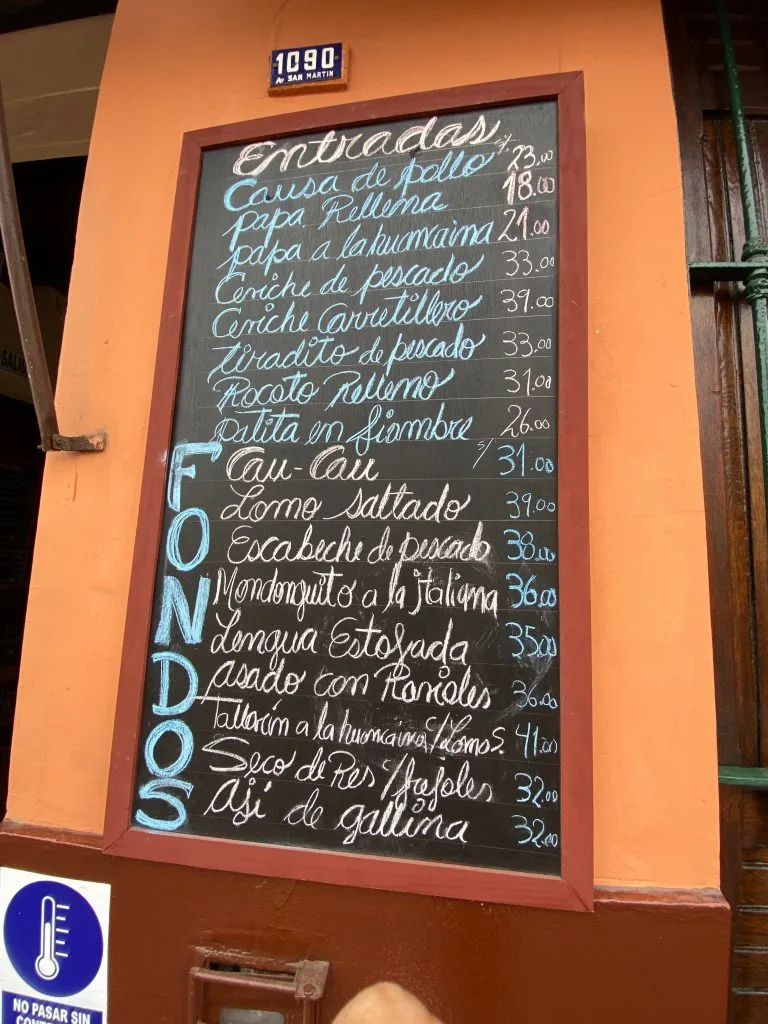 1090
Av SAN MARTIN
Entradas
Causa de pollo S/. 23.00
papa Rellena 18.00
papa a la huancaina 21.00
Ceviche de pescado 33.00
Ceviche Carretillero 39.00
tiradito de pescado 33.00
Rocoto Relleno 31.00
patita en fiambre 26.00
FONDOS
Cau-Cau S/ 31.00
Lomo saltado 39.00
Escabeche de pescado 38.00
Mondonguito a la italiana 36.00
Lengua Estofada 35.00
asado con Ravioles 36.00
Tallarin a la huancaina c/Lomo S. 41.00
Seco de Res c/frejoles 32.00
Aji de gallina 32.00
NO PASAR SIN